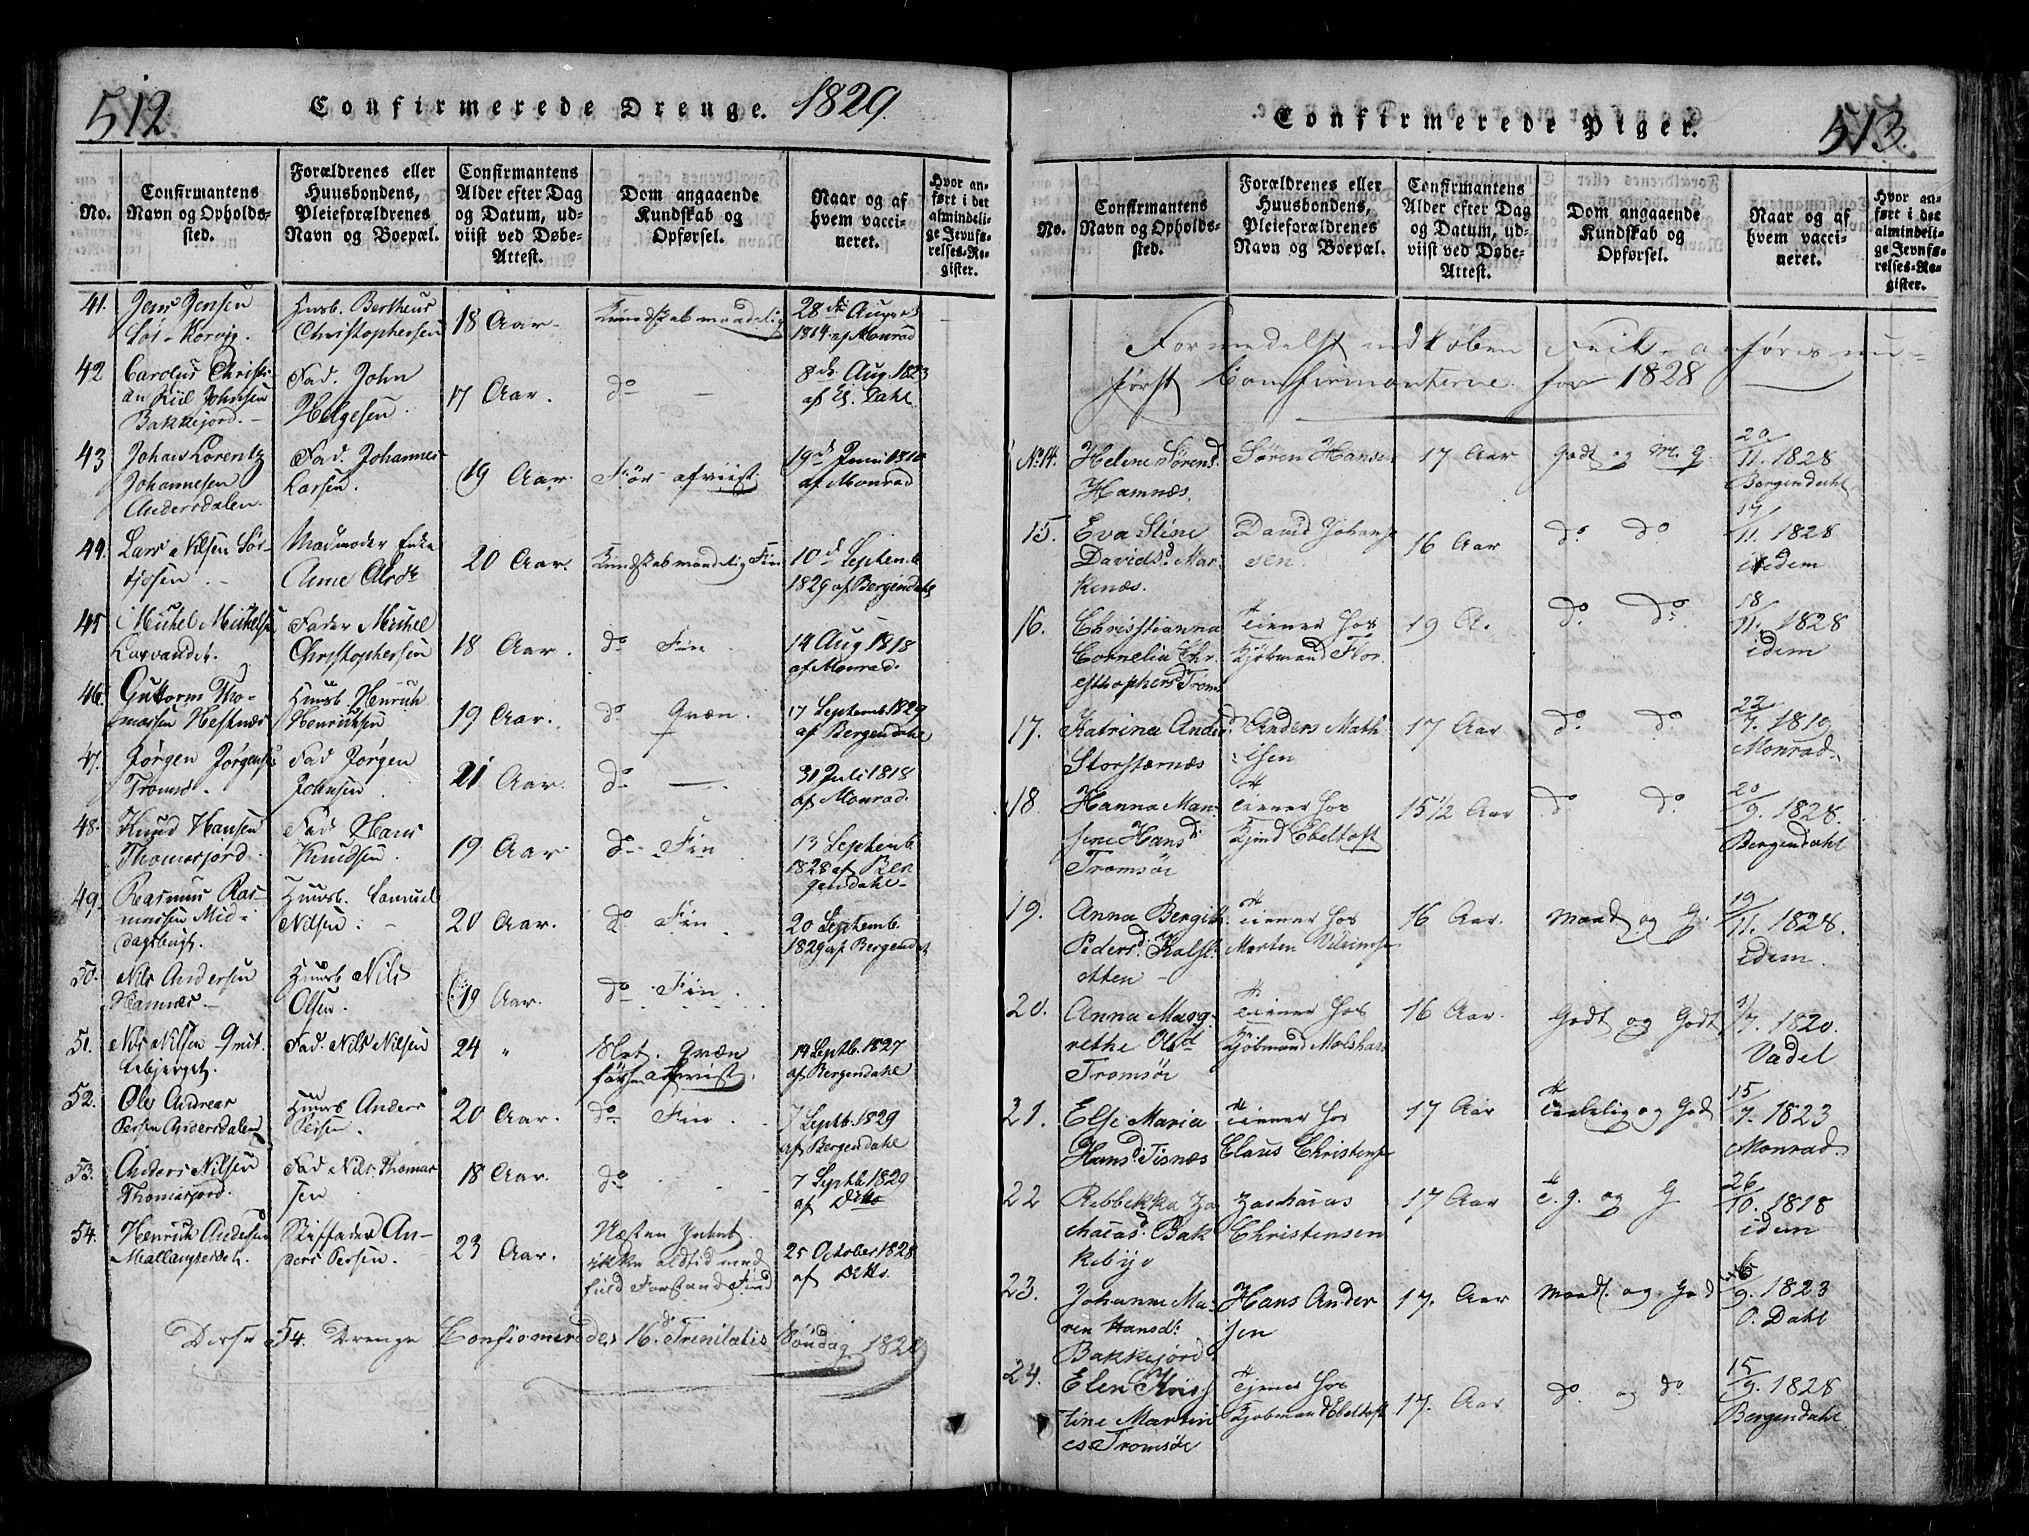 512
Confirmerede Drenge. 1829.
No.
Confirmantens
Navn og Opholds-
sted.
Forældrenes eller
Huusbondens,
Pleieforældrenes
Navn og Boepæl.
Confirmantens
Alder efter Dag
og Datum, ud-
viist ved Døbe-
Attest.
Dom angaaende
Kundskab og
Opførsel.
Naar og af
hvem vacci-
neret.
Hvor an-
ført i det
almindeli-
ge Jevnfø-
relses-Re-
gister.
41. Jens Jensen
Huusb. Bertheus
Christophersen
18 Aar.
Kundskab maadelig
28de August
1814 af Monrad
42 Carolus Christi-
an Kiil Johnsen
Bakkejord.
Fad. John
Helgesen.
17 Aar.
do
8de Aug. 1823
af Dahl
43 Johan Lorentz
Johannesen
Andersdalen.
Fad. Johannes
Larsen.
19 Aar.
Før afviist
19d Juni 1818
af Monrad
44. Lars Nilsen Sør-
fjosen
Madmoder Enke
Anne Olsdr
20 Aar.
Kundskab maadelig Fin
10d Septemb
1829 af Bergendahl
45 Michel Michelsen
Lavvandet.
Fader Michel
Christophersen
18 Aar.
do Fin
14 Aug 1818
af Monrad.
46. Guttorm Tho-
massen Hestnæs
Huusb Henrich
Henriksen
19 Aar.
do Qvæn.
17 Septemb. 1829
af Bergendahl
47. Jørgen Jørgensen
Tromsø.
Fad Jørgen
Johnsen.
21 Aar.
do
31 Juli 1818
af Monrad.
48. Knud Hansen
Thomasjord
Fad Hans
Knudsen.
19 Aar
do Fin
13 Septemb
1828 af Ber
gendahl
49. Rasmus Ras-
mussen Mid-
dagsbugt.
Huusb. Samuel
Nilsen.
20 Aar.
do Fin
20 Septemb.
1829 af Bergendal
50. Nils Andersen
Hamnes
Huusb Nils
Olsen.
19 Aar.
do Fin
51. Nils Nilsen
Fad. Nils Nilsen
24 "
Slet. Qvæn
før afvist.
14 Septb. 1827
af Bergendahl
52. Ole Andreas
Persen Andersdalen
Huusb Anders
Persen.
20 Aar.
do Fin
7 Septb. 1829
af Bergendahl
53. Anders Nilsen
Thomasjord.
Fad Nils Thomas
sen
18 Aar.
do
7 Septb 1829
af Ditto
54. Henrich Andersen
Mallangseidet.
Stiffader An-
ders Persen.
23 Aar.
Næsten Intet
ikke altid med
fuld Forstand Find
25 October 1828
af Ditto.
Disse 54. Drenge Confirmeredes 16d Trinitatis Søndag 1829
513.
Confirmerede Piger.
No.
Confirmantens
Navn og Opholds-
sted.
Forældrenes eller
Huusbondens,
Pleieforældrenes
Navn og Boepæl.
Confirmantens
Alder efter Dag
og Datum, ud-
viist ved Døbe-
Attest.
Dom angaaende
Kundskab og
Opførsel.
Naar og af
hvem vacci-
neret.
Hvor an-
ført i det
almindeli-
ge Jevnfø-
relses-Re-
gister.
Formedelst indkøben Feil anføres nu-
først Confirmanterne for 1828
No 14. Helene Sørensd
Hamnæs.
Søren Hansen
17 Aar
Godt og M. G.
20/11. 1828
Bergendahl
15. Eva Stine
Davidsd. Mar-
kenæs.
David Johan-
sen.
16 Aar
do do
17/11. 1828
idem
16. Christianna
Cornelia Chr-
isthophersd Troms
Tiener hos
Kjøbmand Flor.
19 A.
do. do.
18/11. 1828
idem
17. Katrina Andersd.
Storstærnæs
Anders Math
isen
17 Aar
do do
22/7. 1819
Monrad.
18. Hanna Mar-
Hansd.
Tromsøe
Tiener hos
Kjmd Ebeltoft
15 1/2 Aar
do do.
20/9. 1828.
Bergendahl
19. Anna Bergith
Pedersd. Kalsl-
otten
Tiener hos
Morten
16 Aar.
Maad og G.
19/11. 1828.
idem.
20. Anna Marg-
rethe Olsd
Tromsøe
Tiener hos
Kjøbmand
16 Aar.
Godt og Godt
7. 1820.
Vadel
21. Else Maria
Hansd. Tisnæs
Tiener hos
Claus Christens
17 Aar
Tiedelig og God
15/7. 1823
Monrad.
22 Rebbekka Za
chaiasd. Bak
kebye
Zachaias
Christensen
17 Aar
T. g. og G
26/10. 1818
idem
23. Johanne Ma-
ren Hansd.
Bakkejord.
Hans Ander
sen
17. Aar
Maad. og God
6/9. 1823
O. Dahl
24. Elen Kris
tine Martin
Tromsøe
Tjener hos
Kjøbmand Ebeltoft
17. Aar
do. og do
15/9. 1828
Bergendahl.